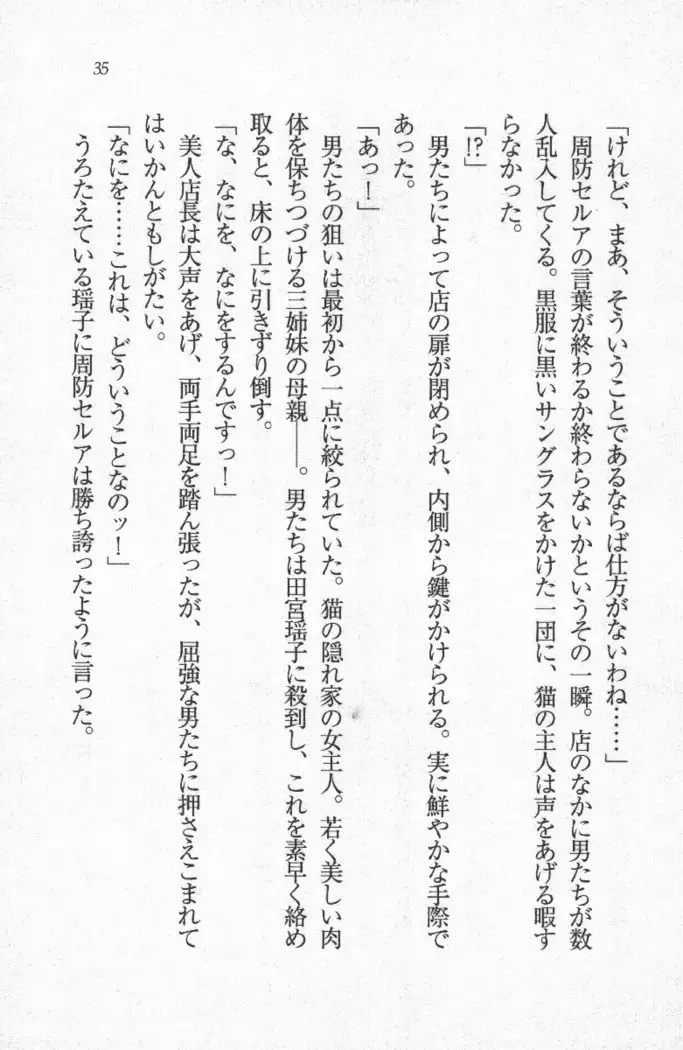 35
「けれど、まあ、そういうことであるならば仕方がないわね……」
　周防セルアの言葉が終わるか終わらないかというその一瞬。店のなかに男たちが数
人乱入してくる。黒服に黒いサングラスをかけた一団に、猫の主人は声をあげる暇す
らなかった。
「!?」
　男たちによって店の扉が閉められ、内側から鍵がかけられる。実に鮮やかな手際で
あった。
「あっ！」
　男たちの狙いは最初から一点に絞られていた。猫の隠れ家の女主人。若く美しい肉
体を保ちつづける三姉妹の母親――。男たちは田宮瑶子に殺到し、これを素早く絡め
取ると、床の上に引きずり倒す。
「な、なにを、なにをするんですっ！」
　美人店長は大声をあげ、両手両足を踏ん張ったが、屈強な男たちに押さえこまれて
はいかんともしがたい。
「なにを……これは、どういうことなのッ！」
　うろたえている瑶子に周防セルアは勝ち誇ったように言った。